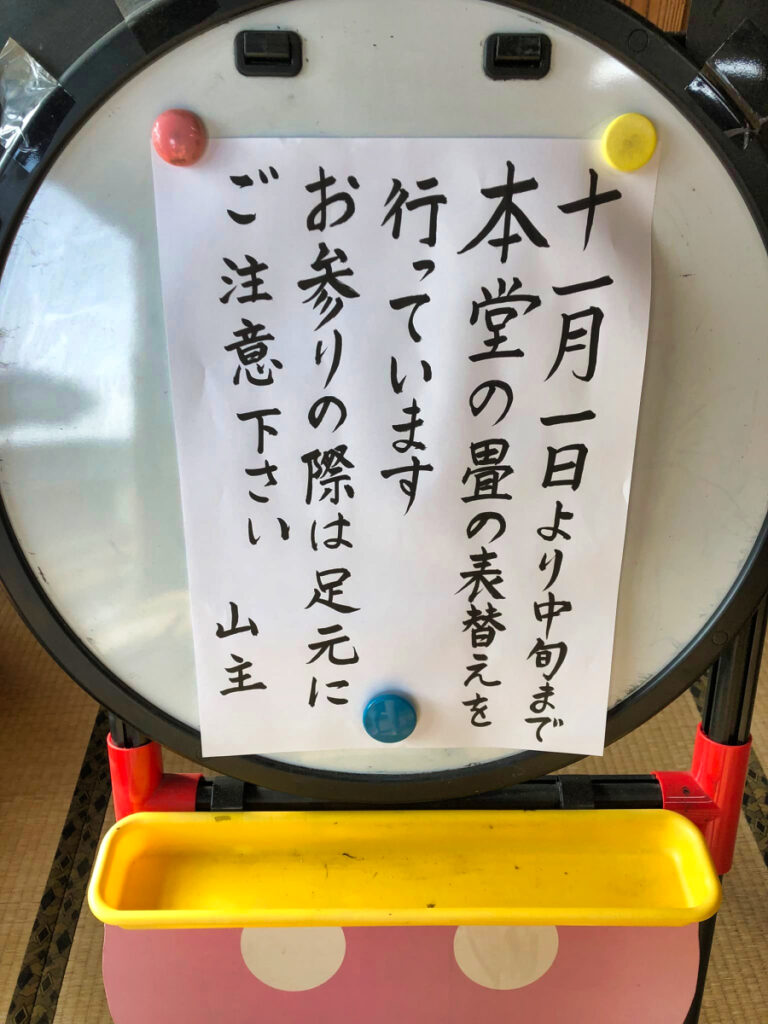 十一月一日より中旬まで
本堂の畳の表替えを
行っています
お参りの際は足元に
ご注意下さい
山主